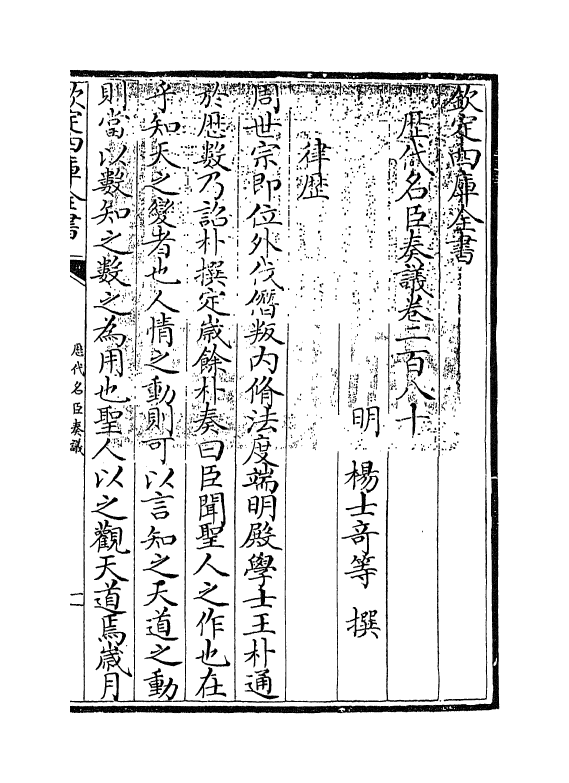 欽定四庫全書
歷代名臣奏議卷二百八十
明 楊士竒等 撰
律歴
周世宗即位外伐僭叛内脩法度端明殿學士王朴通
於歴數乃詔朴撰定歲餘朴奏曰臣聞聖人之作也在
乎知天之變者也人情之動則可以言知之天道之動
則當以數知之數之為用也聖人以之觀天道焉歲月
欽定四庫全書
歷代名臣奏議
一